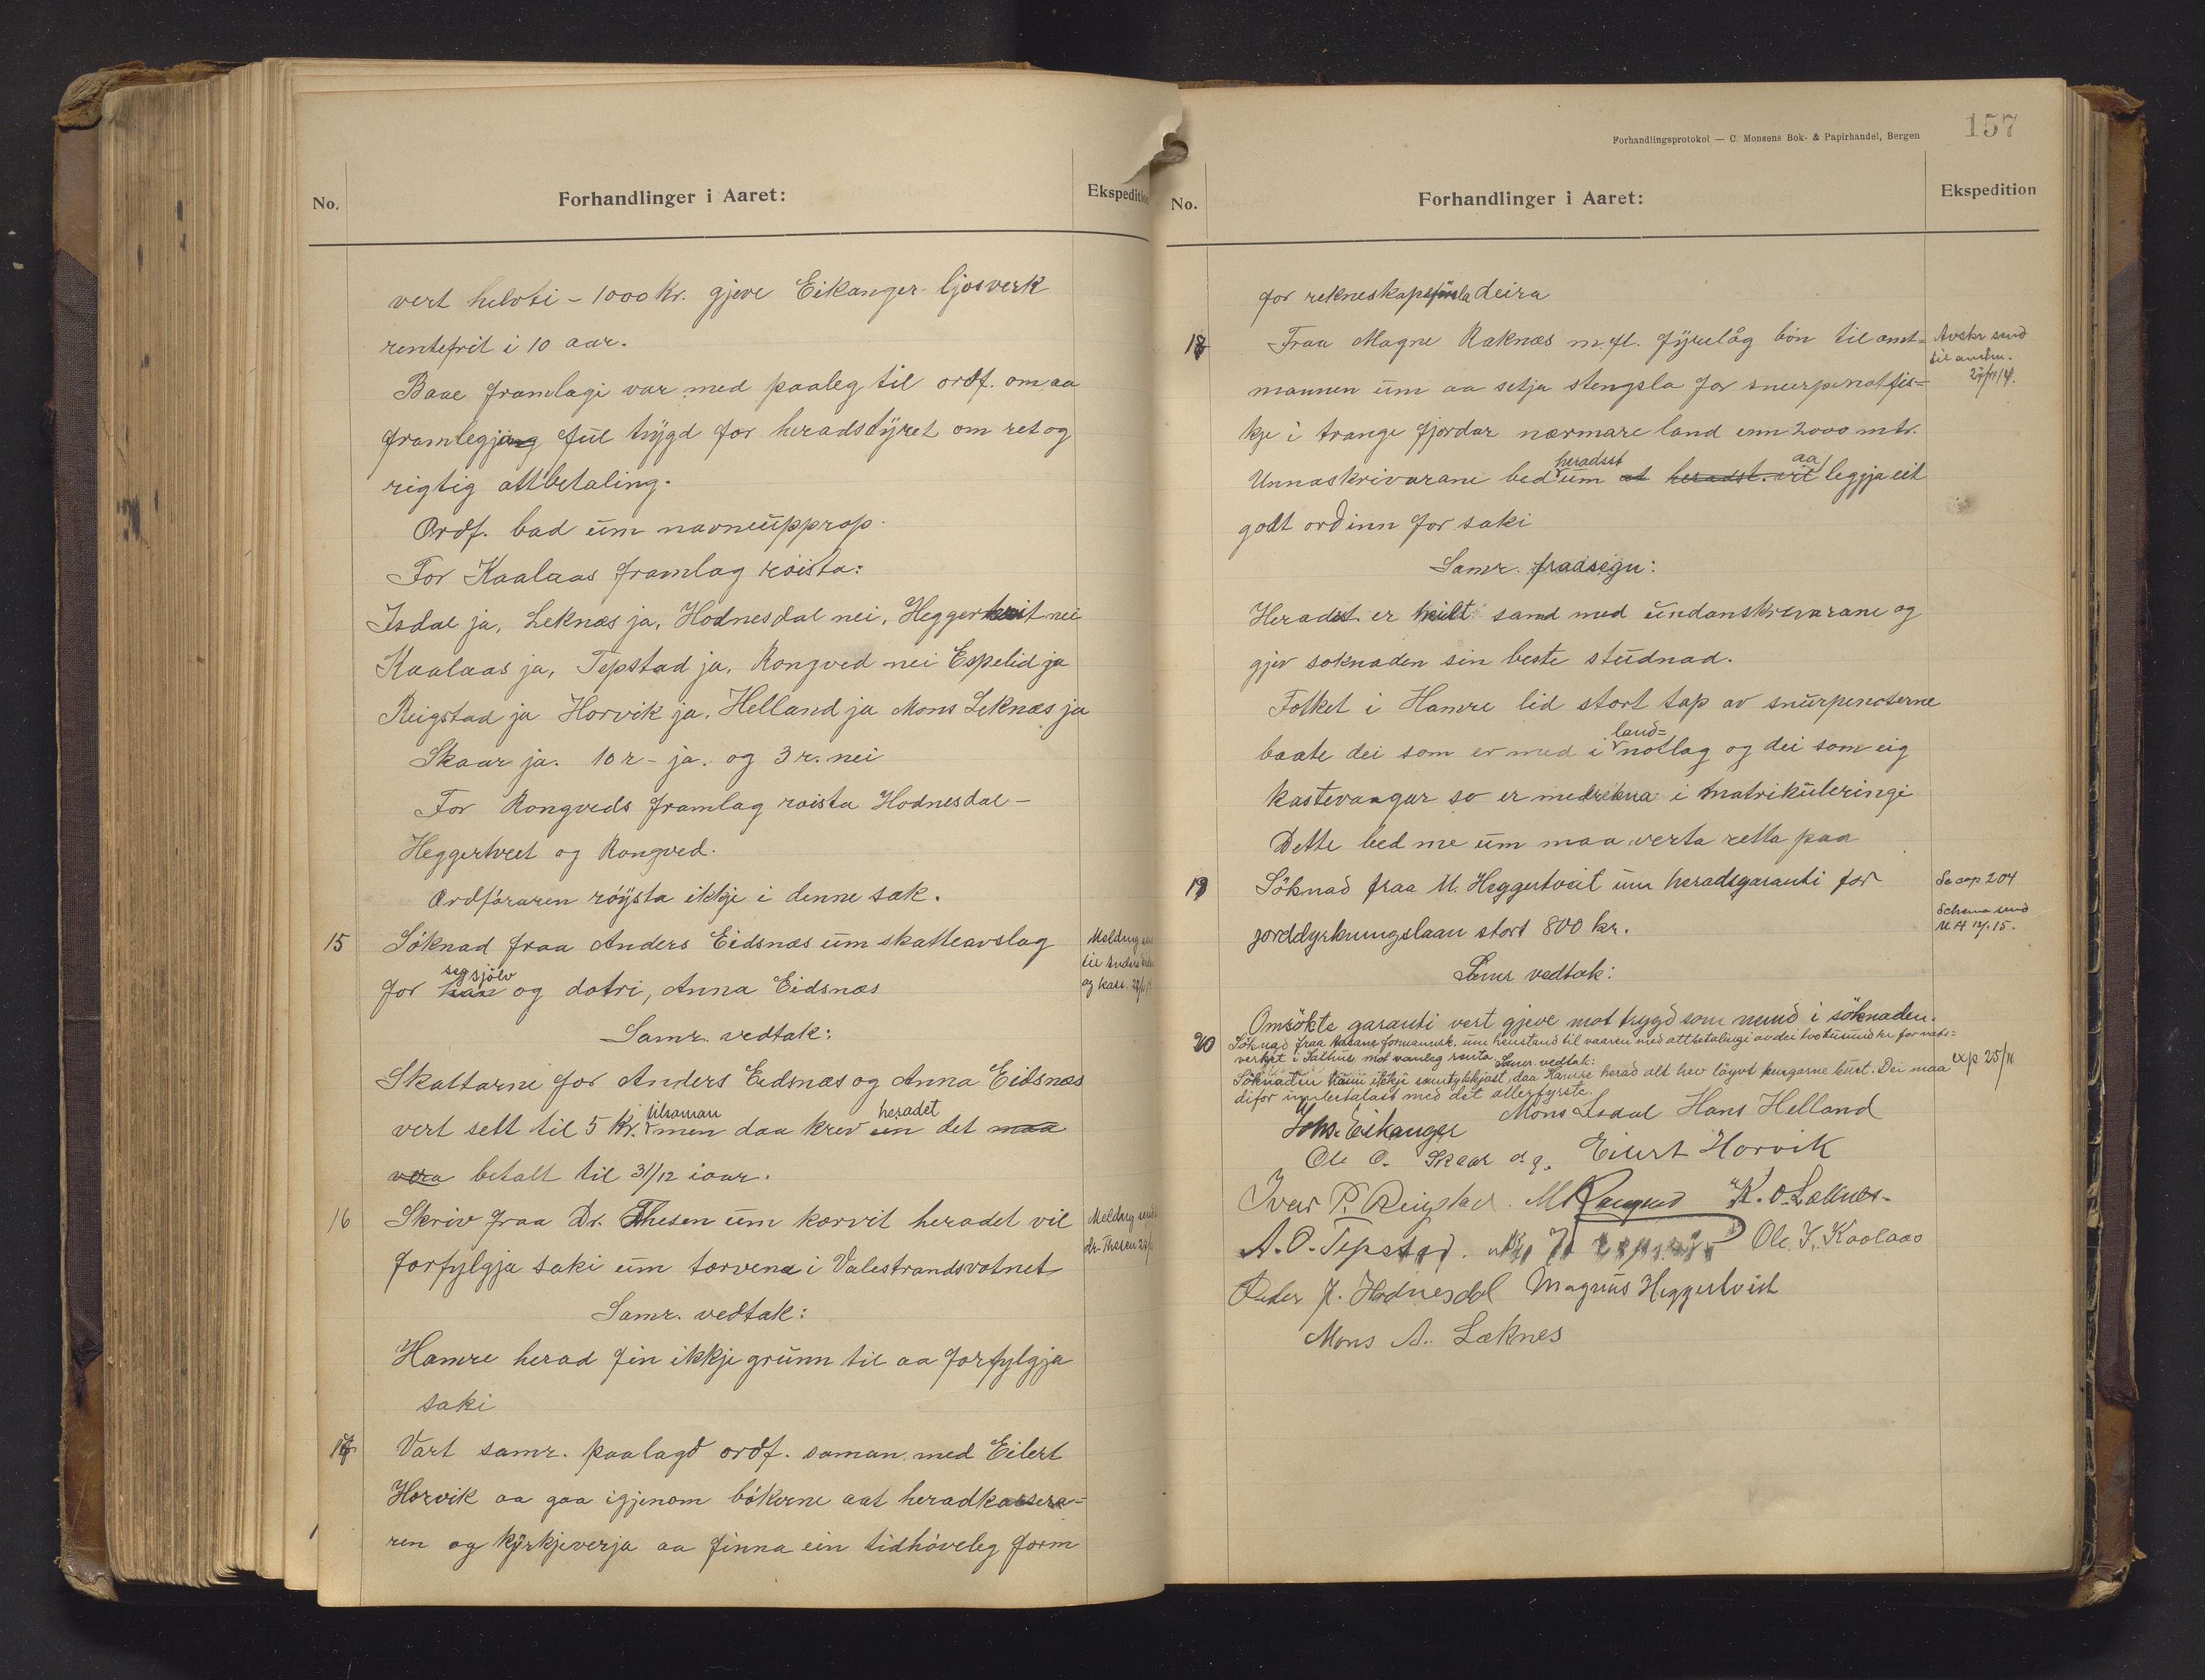 No.
Forhandlinger i Aaret:
Ekspedition
vert helvti - 1000 Kr. gjeve Eikanger ljosverk
rentefrit i 10 aar.
Baae framlagi var med paaleg til ordf. om aa
framlegja ful trygd for heradstyret om ret og
rigtig attbetaling.
Ordf. bad um navneupprop.
For Kaalaas framlag röista:
Isdal ja, Leknæs ja, Hodnesdal nei, Heggertveit nei
Kaalaas ja, Tepstad ja, Rongved nei Espelid ja
Reigstad ja Horvik ja. Helland ja Mons Leknæs ja
Skaar ja. 10 r - ja. og 3 r. nei
For Rongveds framlag röista Hodnesdal -
Heggertveet og Rongved.
Ordföraren röysta ikkje i denne sak.
15 Söknad fraa Anders Eidsnæs um skatteavslag
Meldng
til Anders
og kass.
for han seg sjölv og dotri, Anna Eidsnæs
Samr. vedtak:
Skattarne for Anders Eidsnæs og Anna Eidsnæs
vert sett til 5 Kr. tilsaman men daa krev en heradet det maa
vera betalt til 31/12 iaar.
16 Skriv fraa Dr. Thesen um korvit heradet vil
Meldng send
dr. Thesen
forfylgja saki um torvene i Valestrandsvotnet
Samr. vedtak:
Hamre herad fin ikkje grunn til aa forfylgja
saki
17 Vart samr. paalagd ordf. saman med Eilert
Horvik aa gaa igjenom bökerne aat heradkassera-
ren og kyrkjeverja aa finna ein tidhöveleg form
Forhandlingsprotokol — C. Monsens Bok- & Papirhandel, Bergen
157
No.
Forhandlinger i Aaret:
Ekspedition
for rekneskapi deira
18 Fraa Magne Raknæs m. fl. fyrelåg bön til amt-
Avskr send
til amtm.
mannen um aa setja stengsla for snurpenotfis-
kje i trange fjordar nærmare land enn 2000 mtr.
Unnaskrivarane bed heradsst um at heradst. vil aa leggja eit
godt ord inn for saki
Samr. fraasegn:
Heradsst er heilt samd med undanskrivarane og
gjev soknaden sin beste studnad.
Folket i Hamre lid stort tap av snurpenoterne
baate dei som er med i land- notlag og dei som eig
kastevangar so er medrekna i matrikuleringi
Dette bed me um maa verta retta paa
19 Söknad fraa M. Heggertveit um heradsgaranti for
Se cop 204
Schema send
M H
jorddyrkningslaan stort 800 kr.
Samr vedtak:
Omsökte garanti vert gjeve mot trygd som nemd i söknaden.
20 Söknad fraa Aasane formannsk. um henstand til vaaren med attbetalingi av dei totusund kr for vats-
verket i Salhus mot vanleg renta Samr. vedtak:
Söknaden kann ikkje samtykkjast, daa Hamre herad alt hev löyvt pengarne burt. Dei maa
exp 25/11
difor innbetalast med det allerfyrste.
Johs. Eikanger Mons Isdal Hans Helland
Ole O. Skaar d.y. Eilert Horvik
Ivar P. Reigstad. M Rongved K. O. Læknes.
A. O. Tepstad. Ole J. Kaalaas
Peder J. Hodnesdal Magnus Heggertveit
Mons A. Læknes